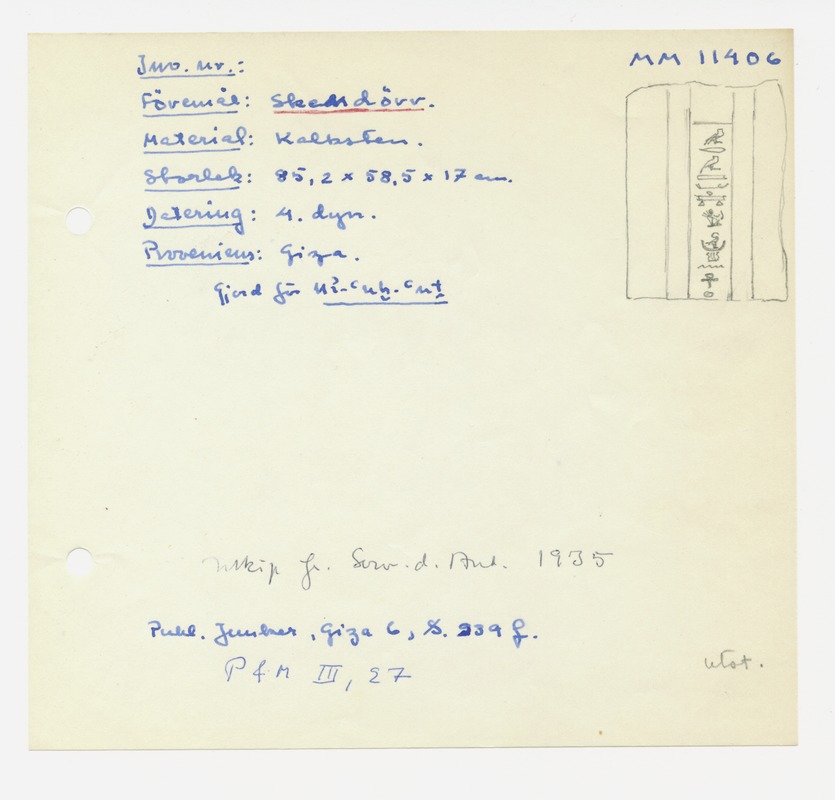 Inv. nr.: MM 11406
Föremål: Skendörr.
Material: Kalksten.
Storlek: 85,2 x 58,5 x 17 cm.
Datering: 4. dyn.
Proveniens: Giza.
Gjord för
Inköp fr. Serv. d. Ant. 1935
Publ. Junker, Giza 6, S. 239 f.
P & M III, 27
utst.